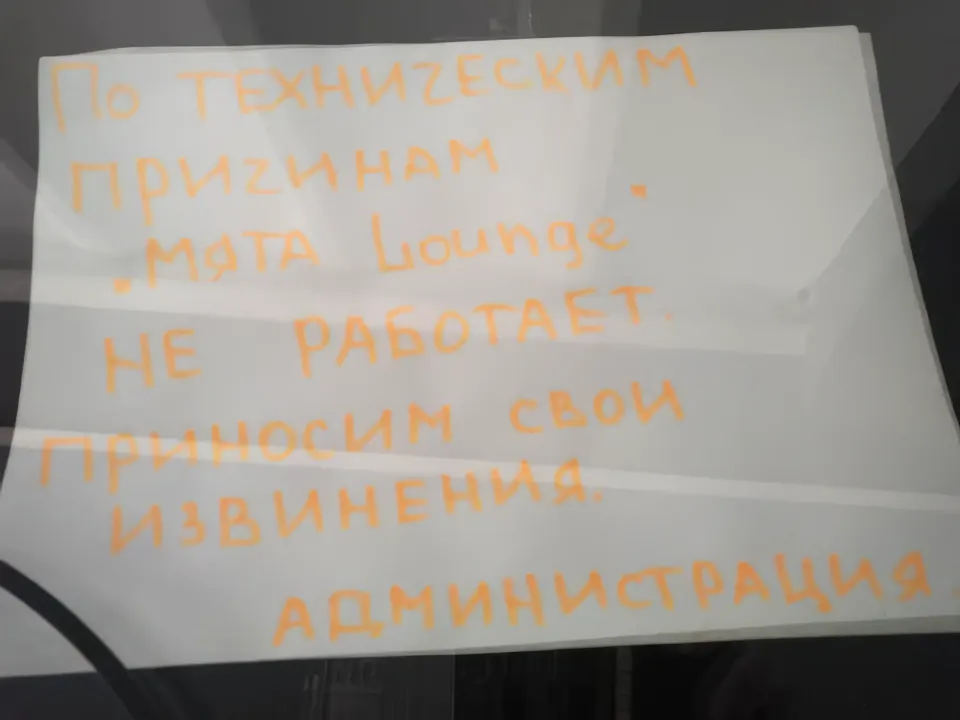 По ТЕХНИЧЕСКИМ
ПРИЧИНАМ
"МЯТА Lounge"
НЕ РАБОТАЕТ.
ПРИНОСИМ СВОИ
ИЗВИНЕНИЯ.
АДМИНИСТРАЦИЯ.